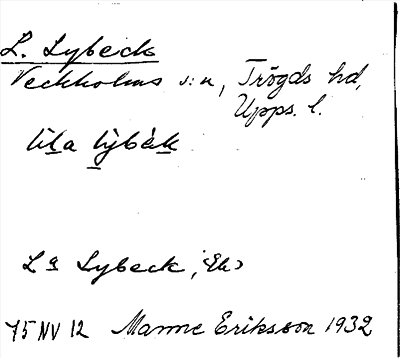 L. Lybeck
Veckholms s:n, Trögds hd,
Upps. l.
lila lybèk
La Lybeck, (Ek)
75 NV 12 Manne Eriksson 1932